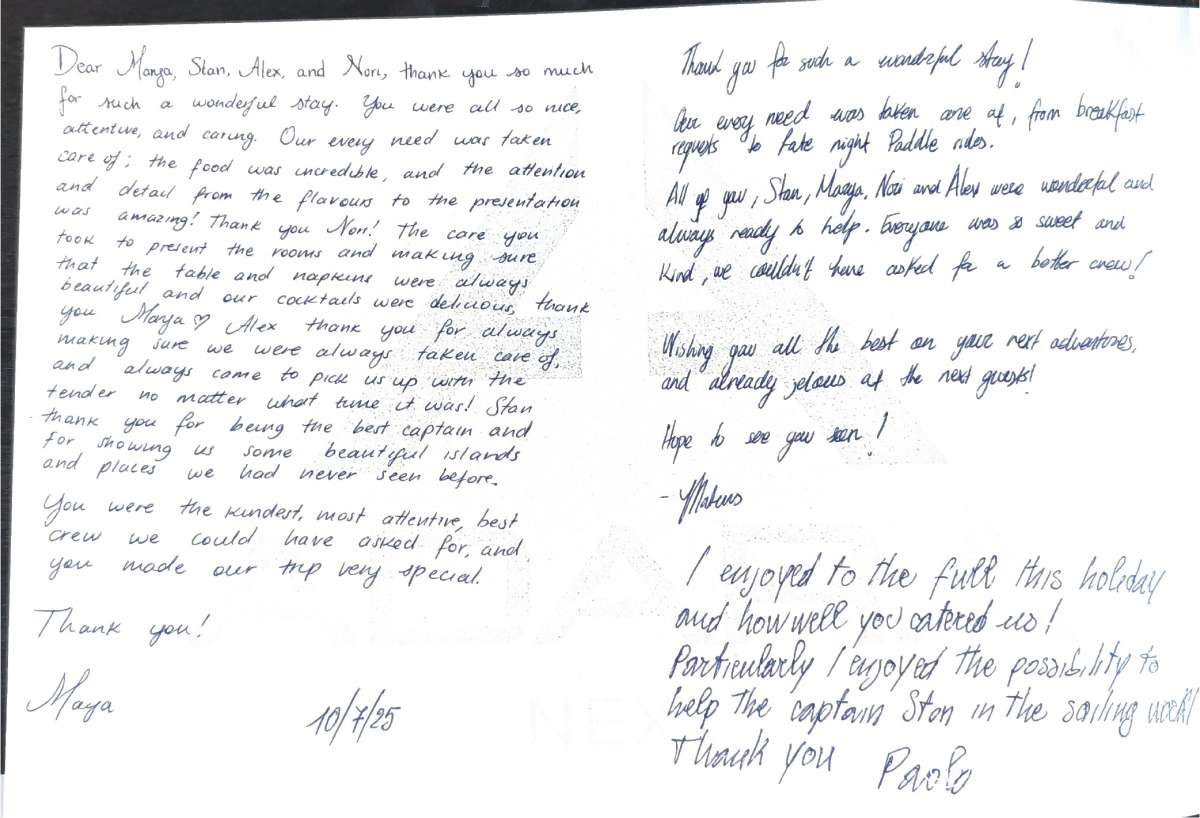 Dear Marya, Stan, Alex, and Nori, thank you so much
for such a wonderful stay. You were all so nice,
attentive, and caring. Our every need was taken
care of; the food was incredible, and the attention
and detail from the flavours to the presentation
was amazing! Thank you Nori! The care you
took to present the rooms and making sure
that the table and napkins were always
beautiful and our cocktails were delicious, thank
you Marya ♡ Alex thank you for always
making sure we were always taken care of,
and always came to pick us up with the
tender no matter what time it was! Stan
thank you for being the best captain and
for showing us some beautiful islands
and places we had never seen before.
You were the kindest, most attentive, best
crew we could have asked for, and
you made our trip very special.
Thank you!
Maya 10/7/25
Thank you for such a wonderful stay!
Our every need was taken care of, from breakfast
requests to late night Paddle rides.
All of you, Stan, Marya, Nori and Alex were wonderful and
always ready to help. Everyone was so sweet and
kind, we couldn't have asked for a better crew!
Wishing you all the best on your next adventures,
and already jelous of the next guests!
Hope to see you soon!
I enjoyed to the full this holiday
and how well you catered us!
Particularly I enjoyed the possibility to
help the captain Stan in the sailing work!
Thank you Paolo
NEX